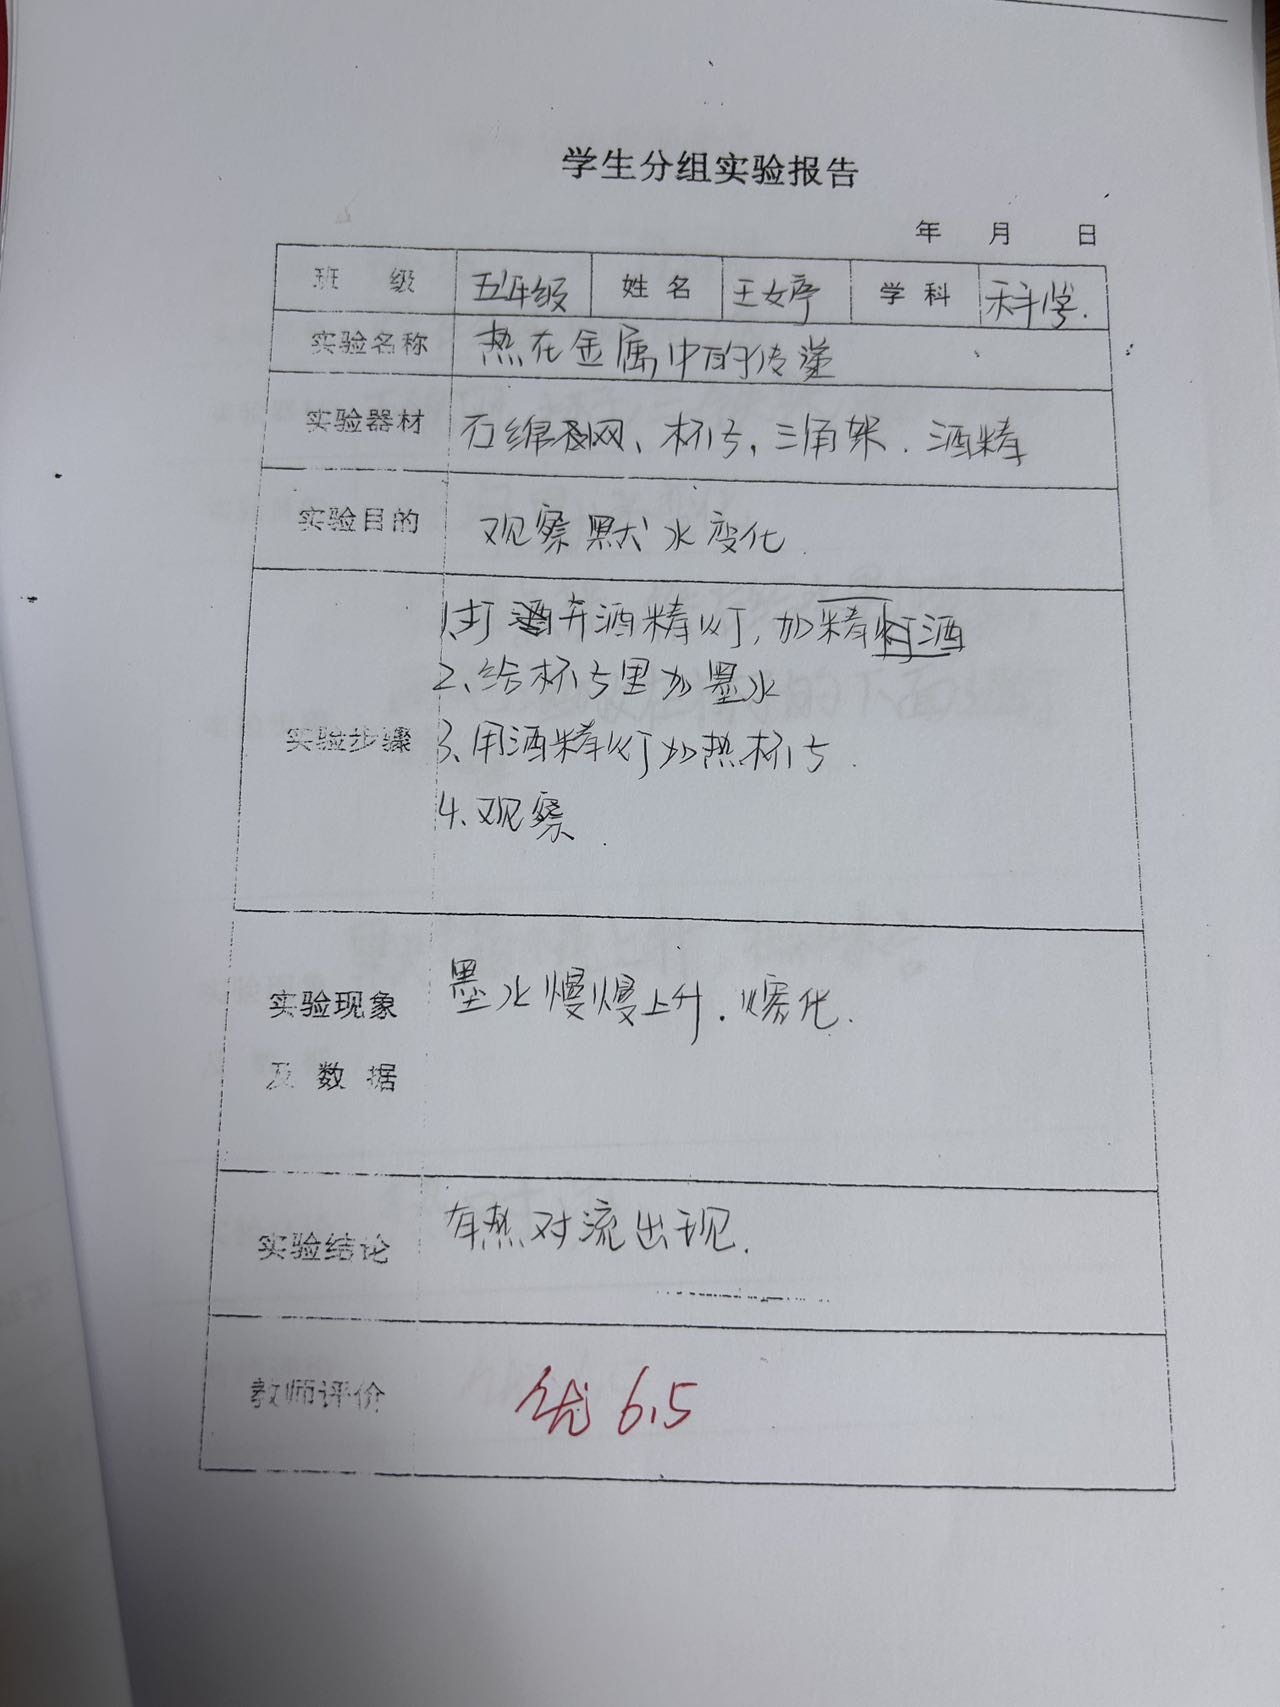 学生分组实验报告
年 月 日
班 级 五年级 姓 名 王女亭 学 科 科学.
实验名称 热在金属中的传递
实验器材 石绵网、杯子,三角架.酒精
实验目的 观察默水变化.
1、打开酒精灯,加精灯酒
2、给杯子里加墨水
实验步骤 3、用酒精灯加热杯子.
4、观察.
实验现象 墨水慢慢上升.熔化.
及 数 据
实验结论 有热对流出现.
教师评价 优 6.5